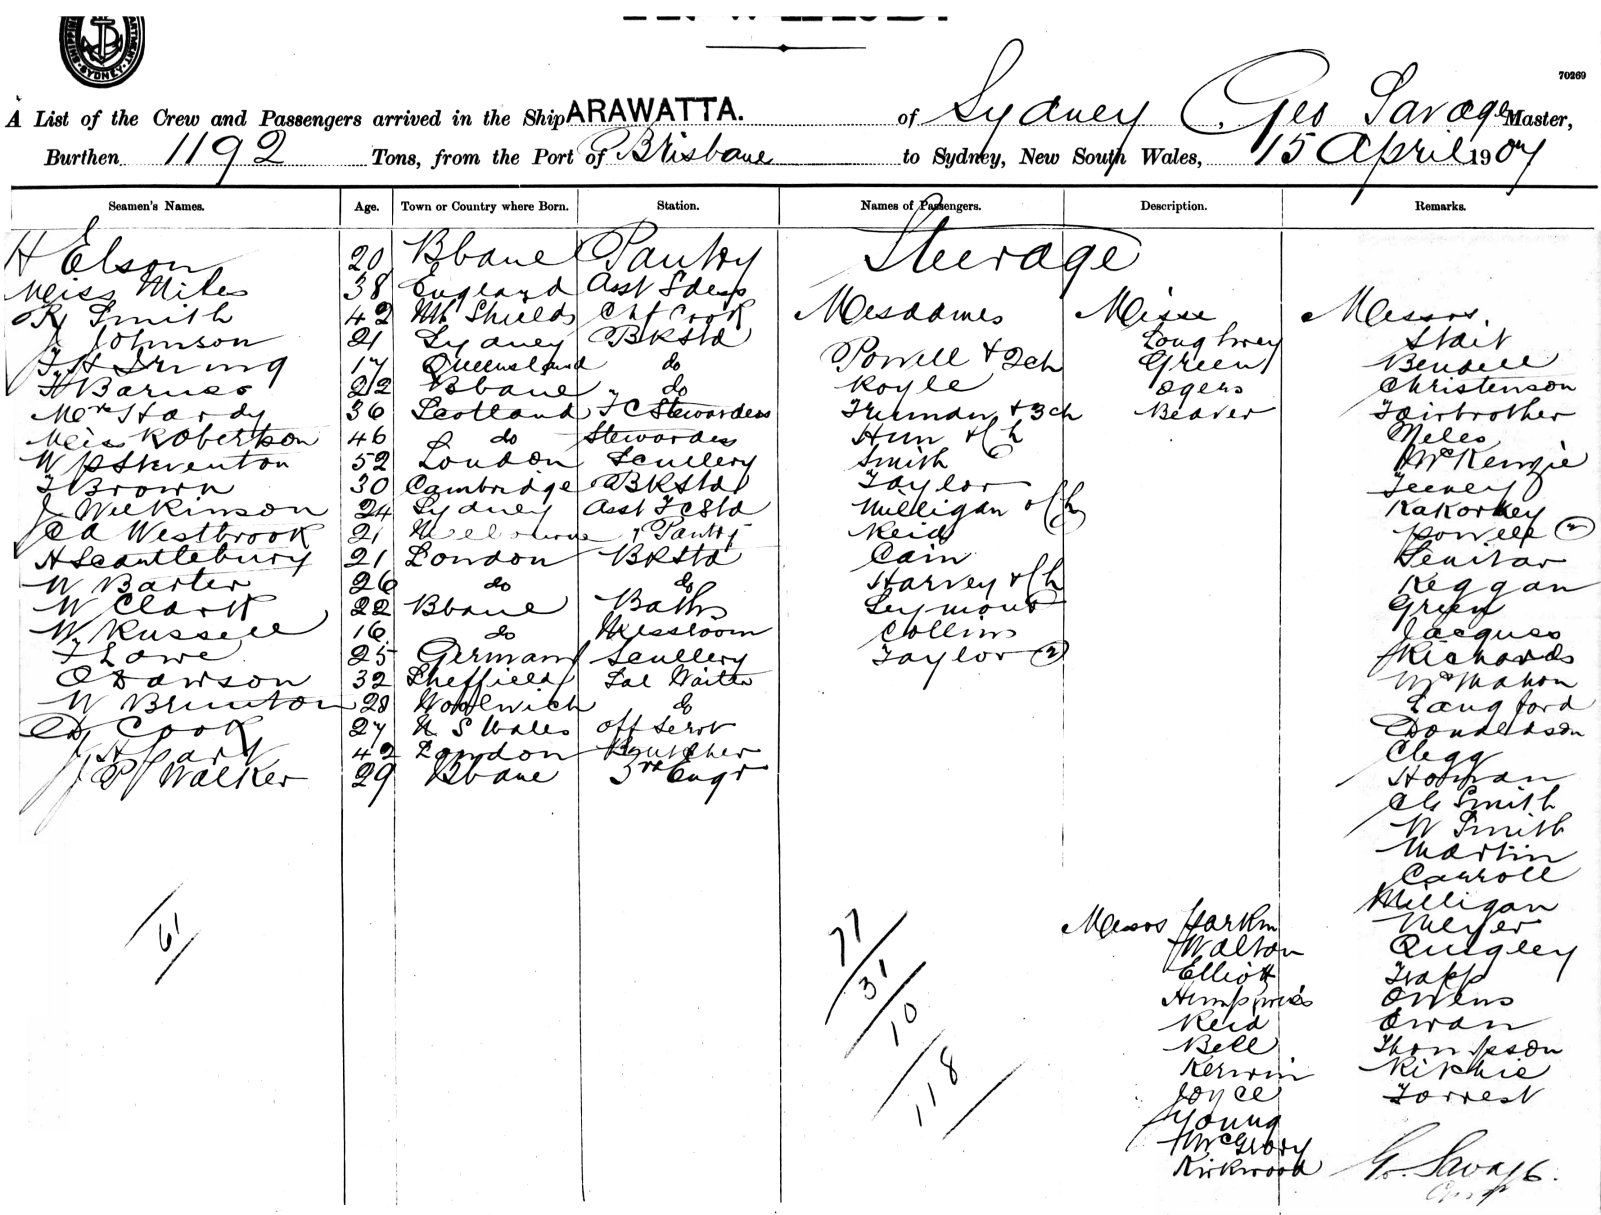 SHIPPING DEPARTMENT SYDNEY
INWARD.
70269
A List of the Crew and Passengers arrived in the Ship ARAWATTA. of Sydney Geo Savage Master,
Burthen 1192 Tons, from the Port of Brisbane to Sydney, New South Wales, 15 April 1907
Seamen's Names. Age. Town or Country where Born. Station. Names of Passengers. Description. Remarks.
H Elson 20 Bbane Pantry
Miss Miles 38 England Asst Sdess
R Smith 42 Nth Shields Chf Cook
J Johnson 21 Sydney BKStd
F. H Irving 17 Queensland do
H Barnes 22 Bbane do
Mrs Hardy 36 Scotland F C Stewardess
Miss Robertson 46 do Stewardess
W P Skeventon 52 London Scullery
F Brown 30 Cambridge BKStd
J Wilkinson 24 Sydney Asst F C Std
C A Westbrook 21 Melbourne " Pantry
H Scantlebury 21 London BKStd
W Barter 26 do do
W Clark 22 Bbane Baths
W. Russell 16 do Messroom
F Lowe 25 Germany Scullery
C Dawson 32 Sheffield Sal Waiter
W Brunton 28 Woolwich do
D Cook 27 N S Wales Off Servt
J H Hart 42 London Butcher
J P Walker 29 Bbane 3rd Engr
61
Steerage
Mesdames
Powell & 2ch
Royle
Freeman & 3ch
Hun & Ch
Smith
Taylor
Milligan & Ch
Reid
Cain
Harvey & Ch
Seymour
Collins
Taylor (2)
77
31
10
118
Misse
Loughrey
Green
Ogens
Beaver
Messrs Harkin
Walton
Elliott
Humphries
Reid
Bell
Kerwin
Joyce
Young
McGrory
Kirkwood
Messrs.
Stait
Bendell
Christenson
Fairbrother
Miles
McKenzie
Feeney
Kakorkey
Powell (2)
Senitar
Keggan
Green
Jacques
Richards
McMahon
Langford
Donaldson
Clegg
Homan
Ch Smith
W Smith
Martin
Carroll
Milligan
Meyer
Quigley
Trapp
Owens
Ewan
Thompson
Ritchie
Forrest
G. Savage.